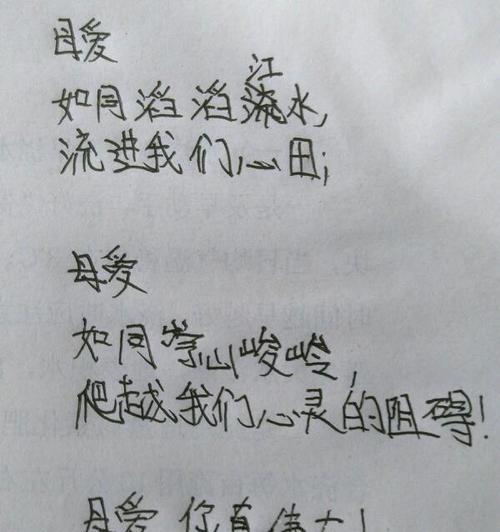 母爱
如同滔滔江水,
流进我们心田;
母爱
如同崇山峻岭,
爬越我们心灵的阻碍!
母爱 你真伟大!